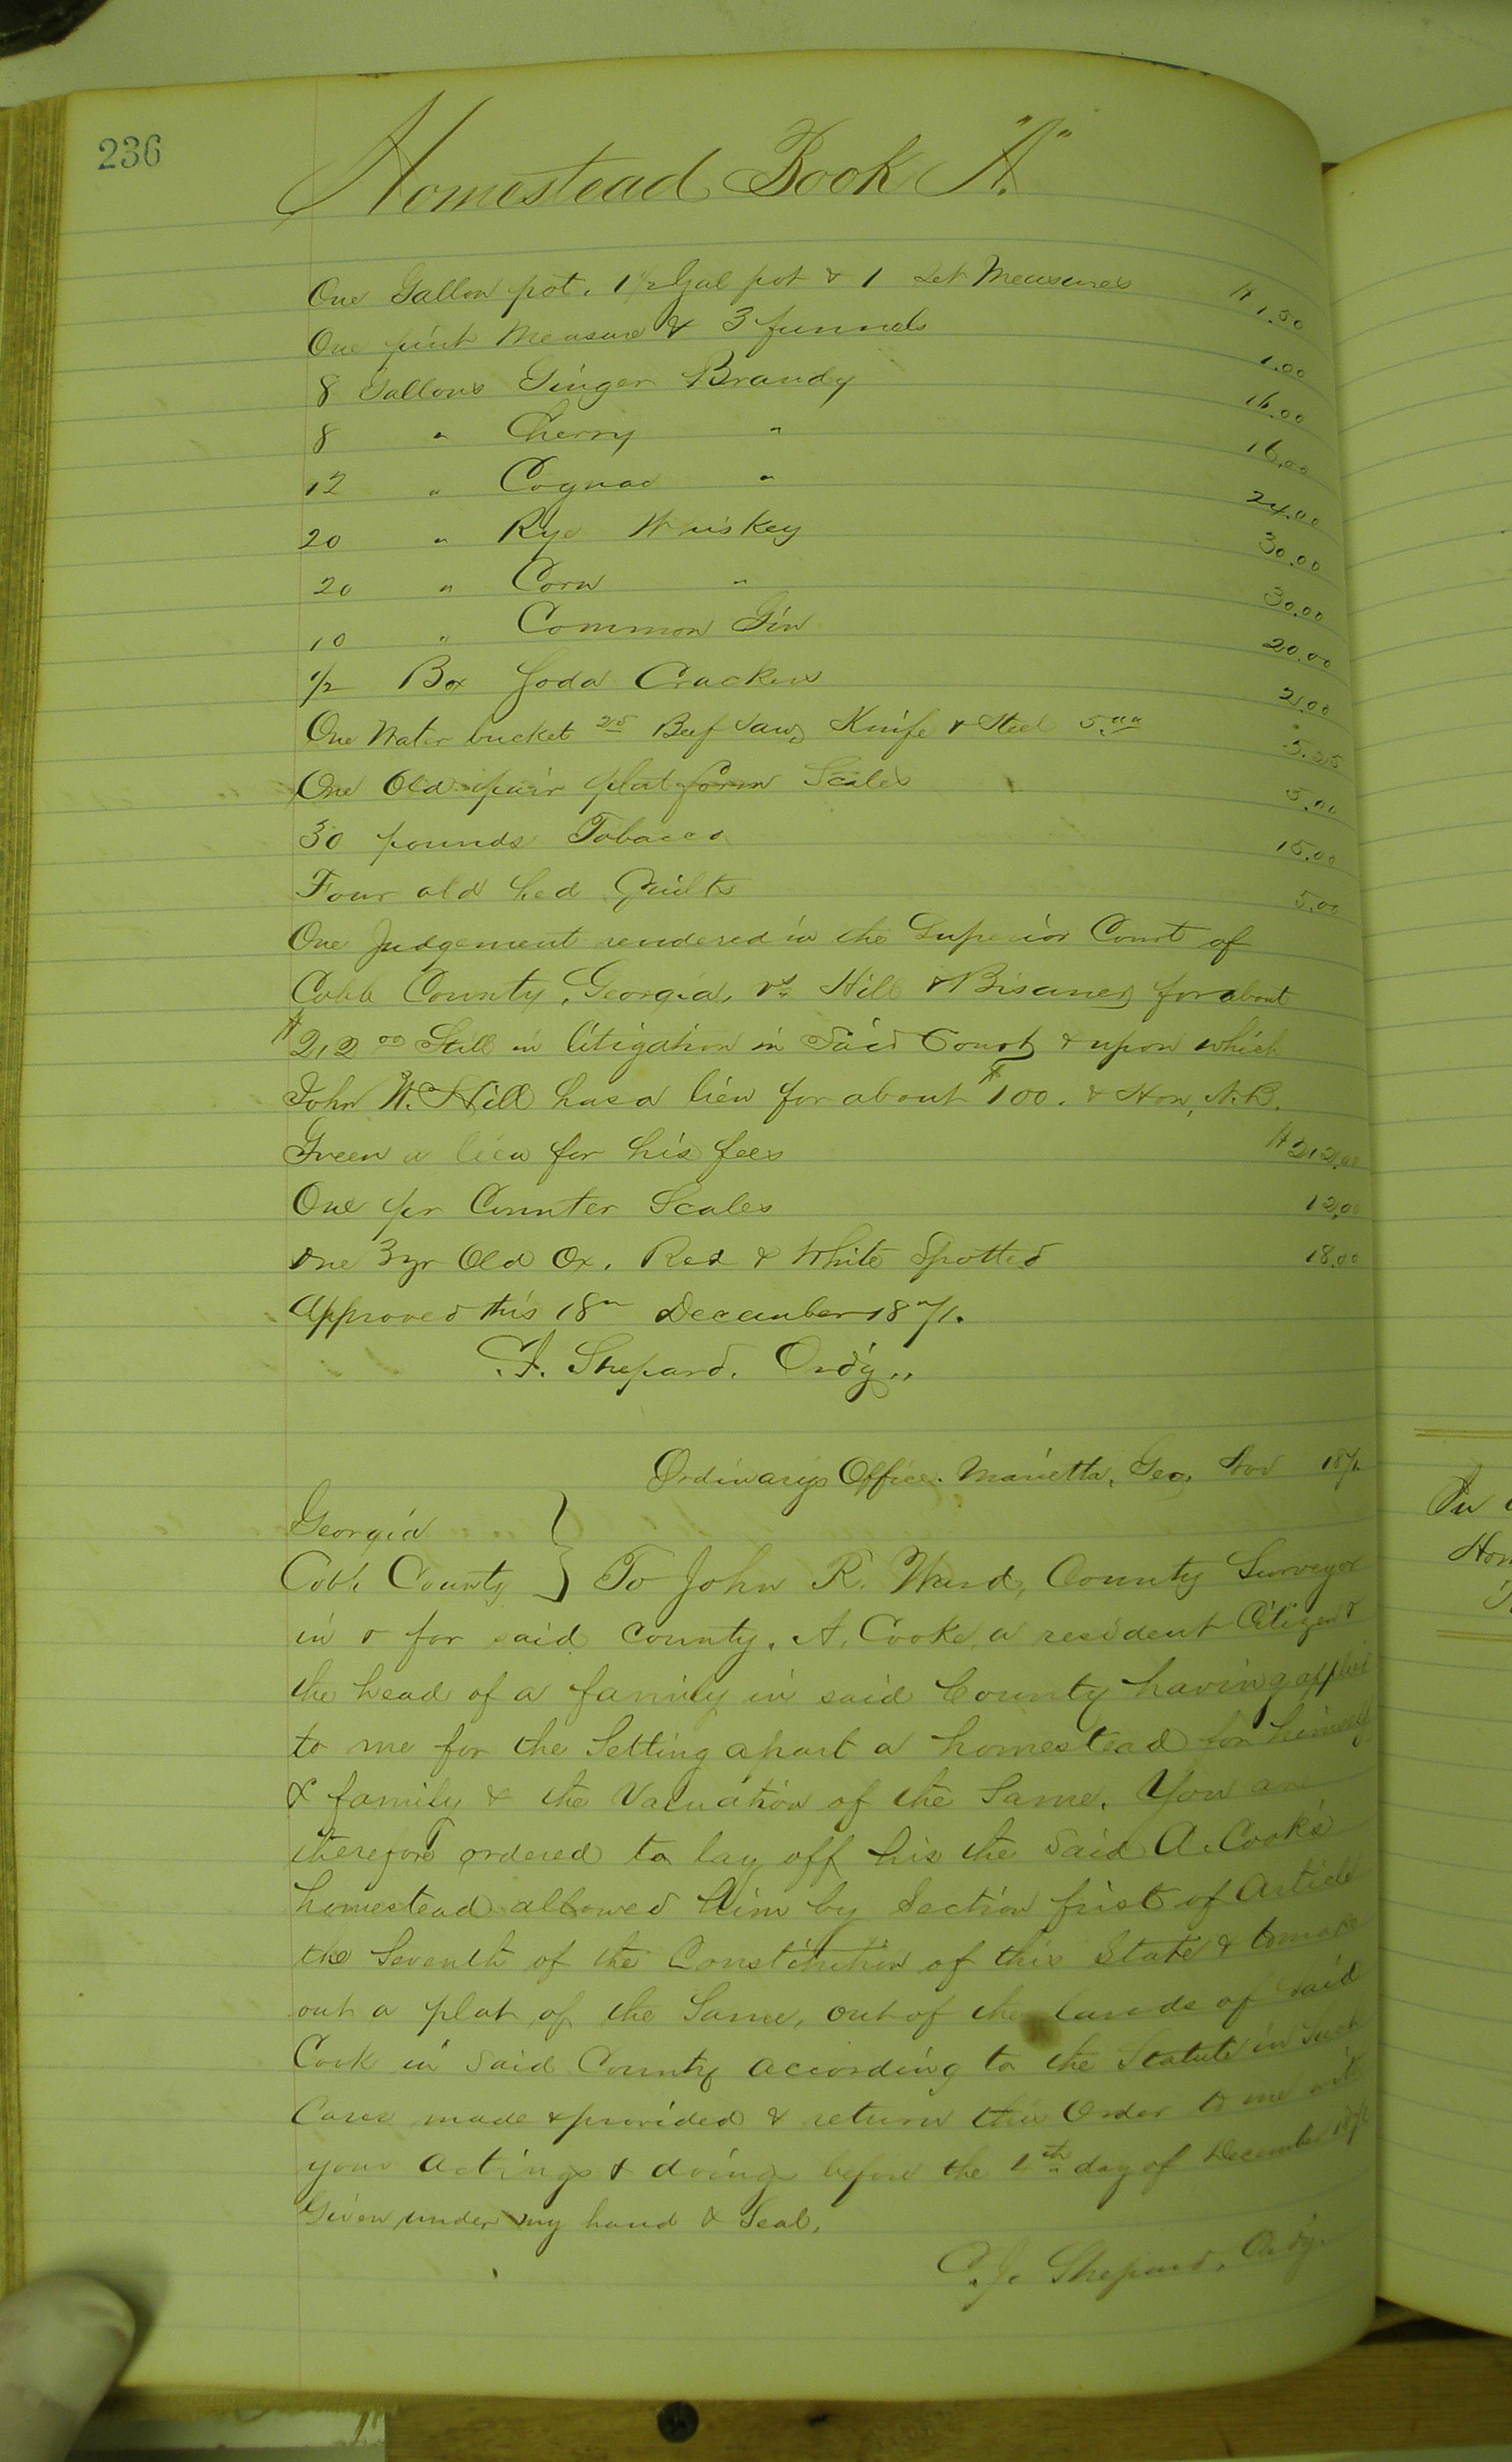 236
Homestead Book "A."
One Gallon pot, 1 1/2 Gal pot & 1 Set Measures $1.50
One pint Measure & 3 funnels 1.00
8 Gallons Ginger Brandy 16.00
8 " Cherry " 16.00
12 " Cognac " 24.00
20 " Rye Whiskey 30.00
20 " Corn " 30.00
10 " Common Gin 20.00
1/2 Box Soda Crackers 2.00
One Water bucket 25 Beef Saw, Knife & Steel 5.00 5.25
One Old pair platform Scales 5.00
30 pounds Tobacco 15.00
Four old bed Quilts 5.00
One Judgement rendered in the Superior Court of
Cobb County, Georgia, vs. Hill & Bisaner for about
$212 00 Still in litigation in Said Court & upon which
John W. Hill has a lien for about $100. & Hon. N.B.
Green a lien for his fees $212.00
One pr Counter Scales 12.00
One 3yr Old Ox, Red & White Spotted 18.00
Approved this 18th December 1871.
C.J. Shepard. Ordy.,
Ordinarys Office. Marietta, Geo, Nov 1871
Georgia
Cobb County } To John R. Ward, County Surveyor
in & for said County. A. Cooke, a resident Citizen &
the head of a family in said County having applied
to me for the Setting apart a homestead for himself
& family & the Valuation of the Same. You are
therefore ordered to lay off his the Said A. Cook's
homestead allowed him by Section frist of Article
the Seventh of the Constitution of this State & to make
out a plat of the Same, out of the lands of said
Cook in Said County according to the Statute in Such
Cases made & provided & return this Order to me with
your actings & doings before the day of December 1871
Given under my hand & Seal.
C.J. Shepard, Ordy.
In
Hon